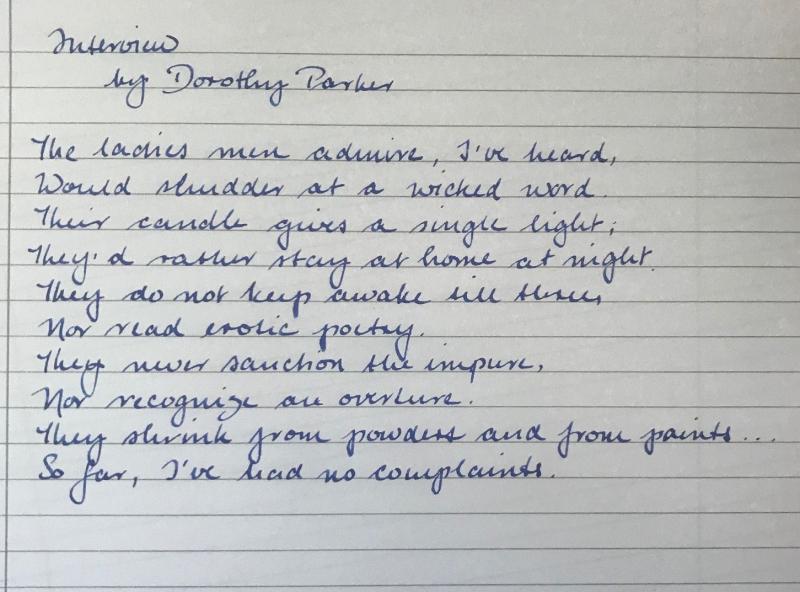 Interview
by Dorothy Parker
The ladies men admire, I've heard,
Would shudder at a wicked word.
Their candle gives a single light;
They'd rather stay at home at night.
They do not keep awake till three,
Nor read erotic poetry.
They never sanction the impure,
Nor recognize an overture.
They shrink from powders and from paints...
So far, I've had no complaints.